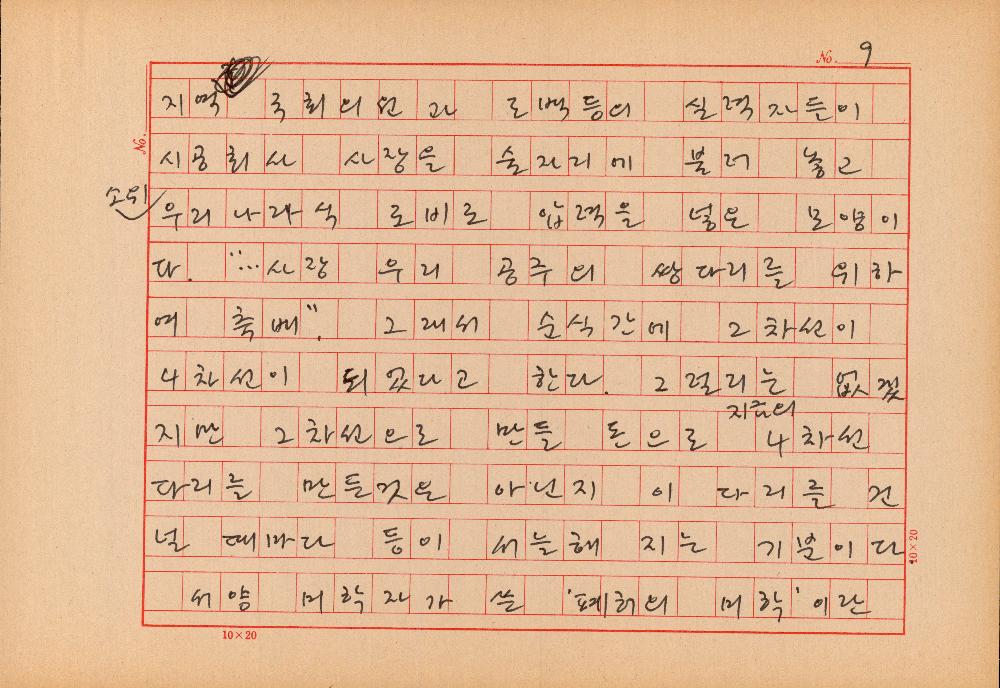 No. 9
No.
지역 국회의원과 로백등의 실력자들이
시공회사 사장을 술자리에 불러 놓고
소위
우리나라식 로비로 압력을 넣은 모양이
다. "…사장 우리 공주의 쌍다리를 위하
여 축배". 그래서 순식간에 2차선이
4차선이 되었다고 한다. 그럴리는 없겠
지금의
지만 2차선으로 만들 돈으로 4차선
다리를 만든것은 아닌지 이 다리를 건
널 때마다 등이 서늘해 지는 기분이다
서양 미학자가 쓴 '폐허의 미학'이란
10×20
10×20